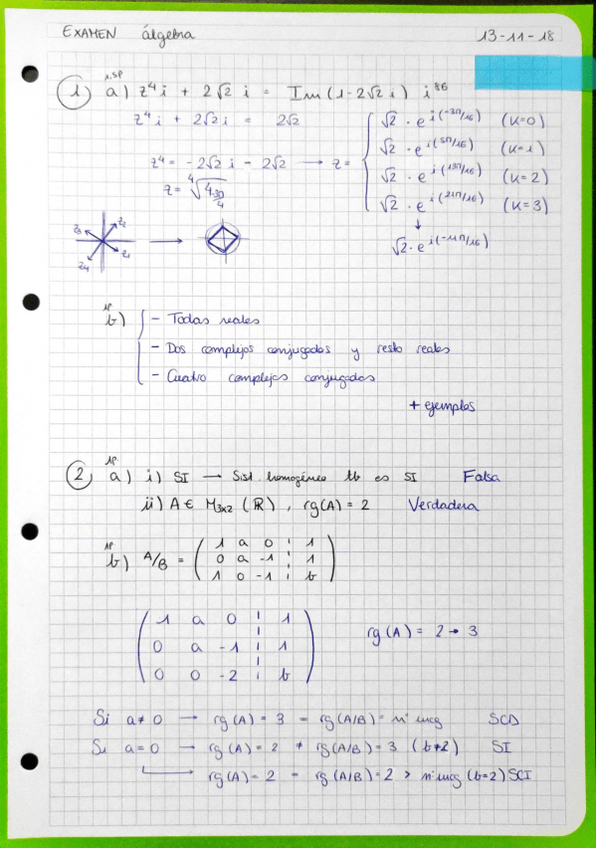 EXAMEN álgebra 13-11-18
1,5P
1) a) z⁴i + 2√2 i = Im (1-2√2 i) i⁸⁶
z⁴i + 2√2 i = 2√2
z⁴ = -2√2 i - 2√2 → z =
√2 · e^i(-3π/16) (K=0)
√2 · e^i(5π/16) (K=1)
√2 · e^i(13π/16) (K=2)
√2 · e^i(21π/16) (K=3)
√2 · e^i(-11π/16)
z₃ z₂
z₄ z₁
1P
b) - Todas reales
- Dos complejos conjugados y resto reales
- Cuatro complejos conjugados
+ ejemplos
1P
2) a) i) SI → Sist. homogéneo tb es SI Falsa
ii) A ∈ M₃ₓ₂ (ℝ), rg(A) = 2 Verdadera
1P
b) A/B = ( 1 a 0 ¦ 1
0 a -1 ¦ 1
1 0 -1 ¦ b )
( 1 a 0 ¦ 1
0 a -1 ¦ 1 rg(A) = 2 → 3
0 0 -2 ¦ b )
Si a≠0 → rg(A) = 3 = rg(A/B) = nº incg SCD
Si a=0 → rg(A) = 2 ≠ rg(A/B) = 3 (b≠2) SI
rg(A) = 2 = rg(A/B) = 2 > nº incg (b=2) SCI